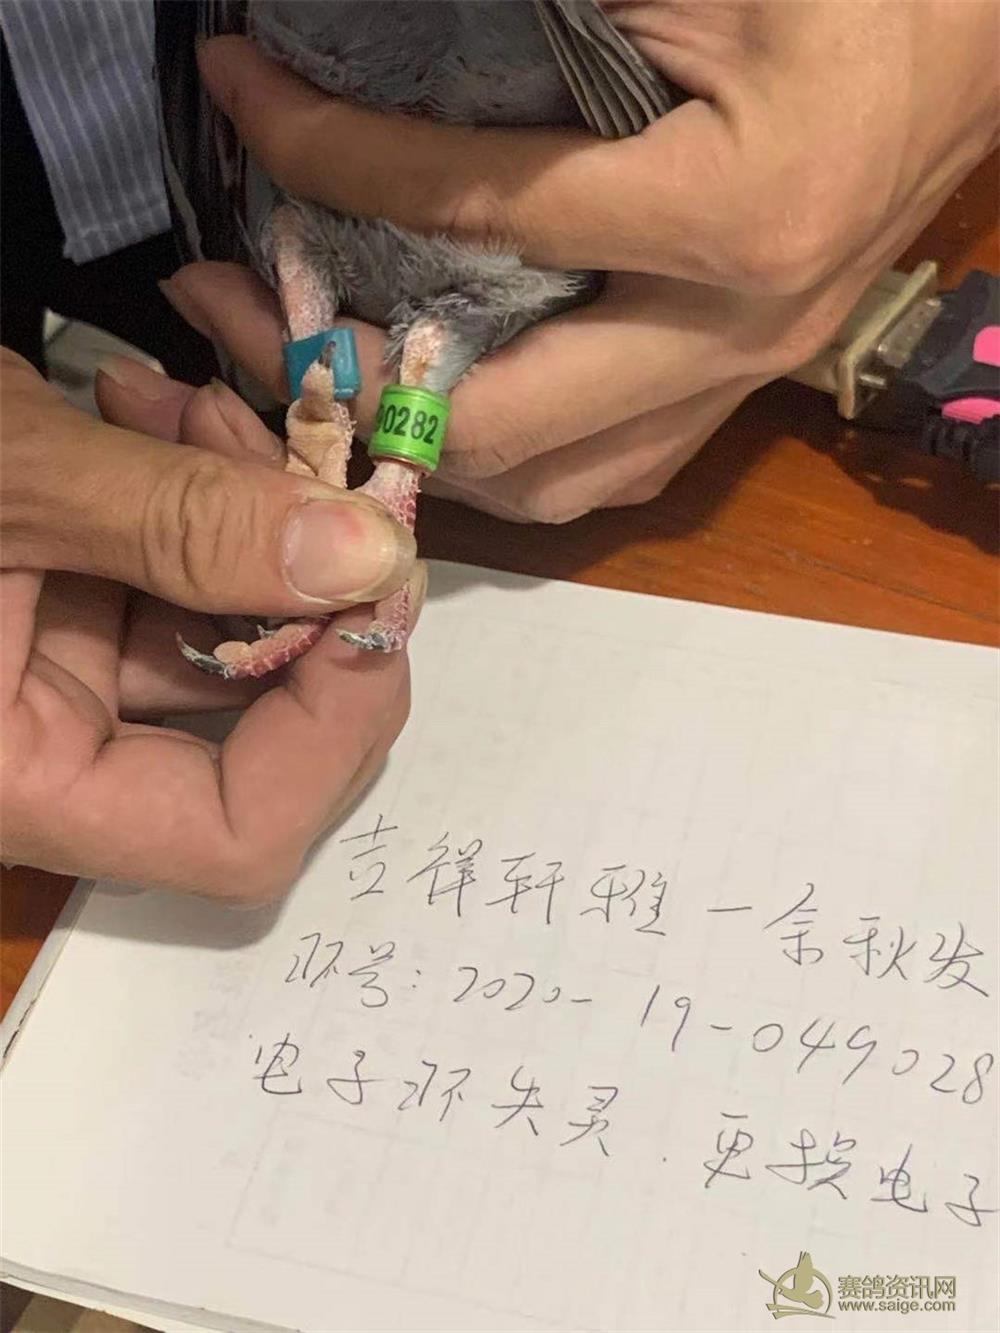 90282
吉祥轩雅一余秋发
环号:2020-19-049028
电子环失灵.更换电子
赛鸽资讯网
www.saige.com